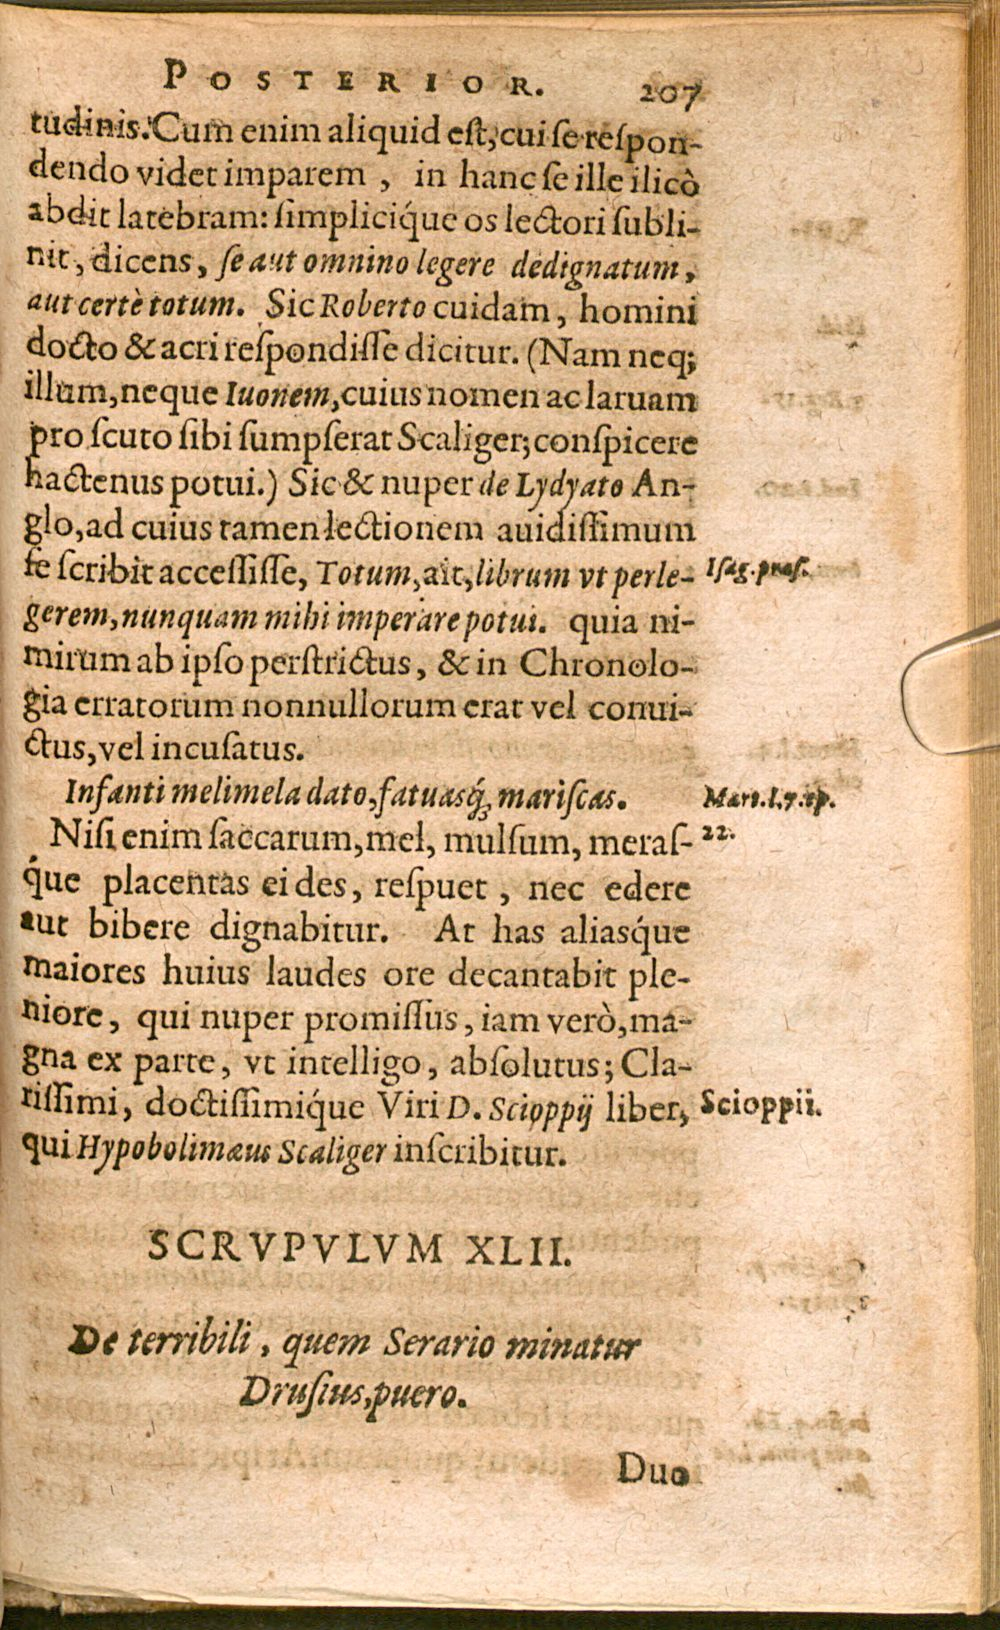 POSTERIOR. 207
tudinis. Cum enim aliquid est, cui se respon-
dendo videt imparem, in hanc se ille ilicò
abdit latebram: simplicíque os lectori subli-
nit, dicens, se aut omnino legere dedignatum,
aut certè totum. Sic Roberto cuidam, homini
docto & acri respondisse dicitur. (Nam neq;
illum, neque Iuonem, cuius nomen ac laruam
pro scuto sibi sumpserat Scaliger; conspicere
hactenus potui.) Sic & nuper de Lydyato An-
glo, ad cuius tamen lectionem auidissimum
se scribit accessisse, Totum, ait, librum vt perle-
Isag. præf.
gerem, nunquam mihi imperare potui. quia ni-
mirum ab ipso perstrictus, & in Chronolo-
gia erratorum nonnullorum erat vel conui-
ctus, vel incusatus.
Infanti melimela dato, fatuasq́; mariscas.
Mart. l. 7. ep.
22.
Nisi enim saccarum, mel, mulsum, meras-
q́ue placentas ei des, respuet, nec edere
aut bibere dignabitur. At has aliasq́ue
maiores huius laudes ore decantabit ple-
niore, qui nuper promissus, iam verò, ma-
gna ex parte, vt intelligo, absolutus; Cla-
rissimi, doctissimiq́ue Viri D. Scioppij liber,
Scioppii.
qui Hypobolimæus Scaliger inscribitur.
SCRVPVLVM XLII.
De terribili, quem Serario minatur
Drusius, puero.
Duo